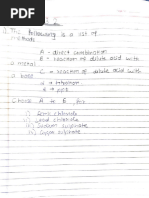 2. The following is a list of
methods
A = direct combination
B = reaction of dilute acid with
a metal
C = reaction of dilute acid with
a base
d = titration
d = ppt
Choose A to E for
i)
ii) Lead chloride
iii) sulphate
iv) sulphate